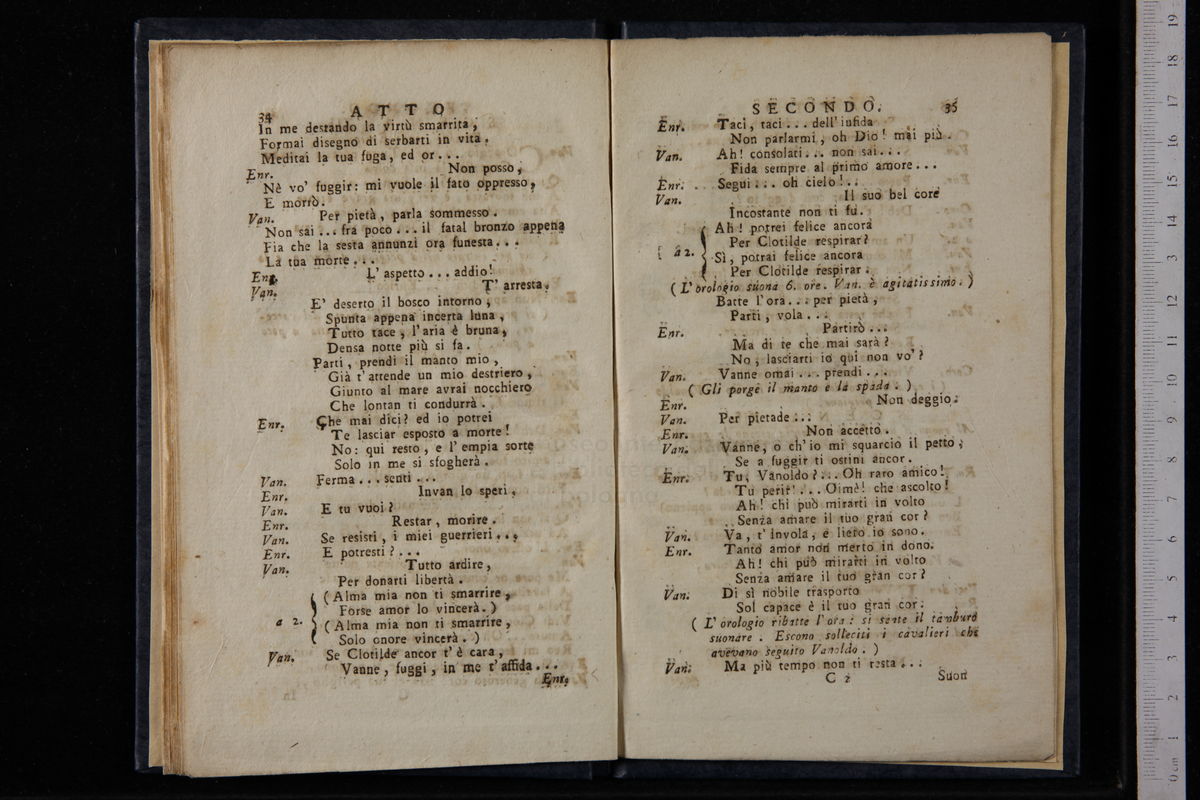 34 ATTO
In me destando la virtù smarrita,
Formai disegno di serbarti in vita.
Meditai la tua fuga, ed or...
Enr. Non posso,
Nè vo' fuggir: mi vuole il fato oppresso,
E morrò.
Van. Per pietà, parla sommesso.
Non sai... fra poco... il fatal bronzo appena
Fia che la sesta annunzi ora funesta...
La tua morte...
Enr. L'aspetto... addio!
Van. T'arresta.
E' deserto il bosco intorno,
Spunta appena incerta luna,
Tutto tace, l'aria è bruna,
Densa notte più si fa.
Parti, prendi il manto mio,
Già t'attende un mio destriero,
Giunto al mare avrai nocchiero
Che lontan ti condurrà.
Enr. Che mai dici? ed io potrei
Te lasciar esposto a morte!
No: qui resto, e l'empia sorte
Solo in me si sfogherà.
Van. Ferma... senti...
Enr. Invan lo speri,
Van. E tu vuoi?
Enr. Restar, morire.
Van. Se resisti, i miei guerrieri...
Enr. E potresti?...
Van. Tutto ardire,
Per donarti libertà.
(Alma mia non ti smarrire,
Forse amor lo vincerà.)
a 2.
(Alma mia non ti smarrire,
Solo onore vincerà.)
Van. Se Clotilde ancor t'è cara,
Vanne, fuggi, in me t'affida...
Enr.
SECONDO. 35
Enr. Taci, taci... dell'infida
Non parlarmi, oh Dio! mai più.
Van. Ah! consolati... non sai...
Fida sempre al primo amore...
Enr. Segui... oh cielo!..
Van. Il suo bel core
Incostante non ti fu.
Ah! potrei felice ancora
Per Clotilde respirar?
a 2.
Sì, potrai felice ancora
Per Clotilde respirar.
(L'orologio suona 6. ore. Van. è agitatissimo.)
Batte l'ora... per pietà,
Parti, vola...
Enr. Partirò...
Ma di te che mai sarà?
No, lasciarti io qui non vo'?
Van. Vanne omai... prendi...
(Gli porge il manto e la spada.)
Enr. Non deggio.
Van. Per pietade...
Enr. Non accetto.
Van. Vanne, o ch'io mi squarcio il petto,
Se a fuggir ti ostini ancor.
Enr. Tu, Vanoldo?... Oh raro amico!
Tu perir!... Oimè! che ascolto!
Ah! chi può mirarti in volto
Senza amare il tuo gran cor?
Van. Va, t'invola, e lieto io sono.
Enr. Tanto amor non merto in dono.
Ah! chi può mirarti in volto
Senza amare il tuo gran cor?
Van. Di sì nobile trasporto
Sol capace è il tuo gran cor.
(L'orologio ribatte l'ora: si sente il tamburo
suonare. Escono solleciti i cavalieri che
avevano seguito Vanoldo.)
Van. Ma più tempo non ti resta...
C 2 Suon